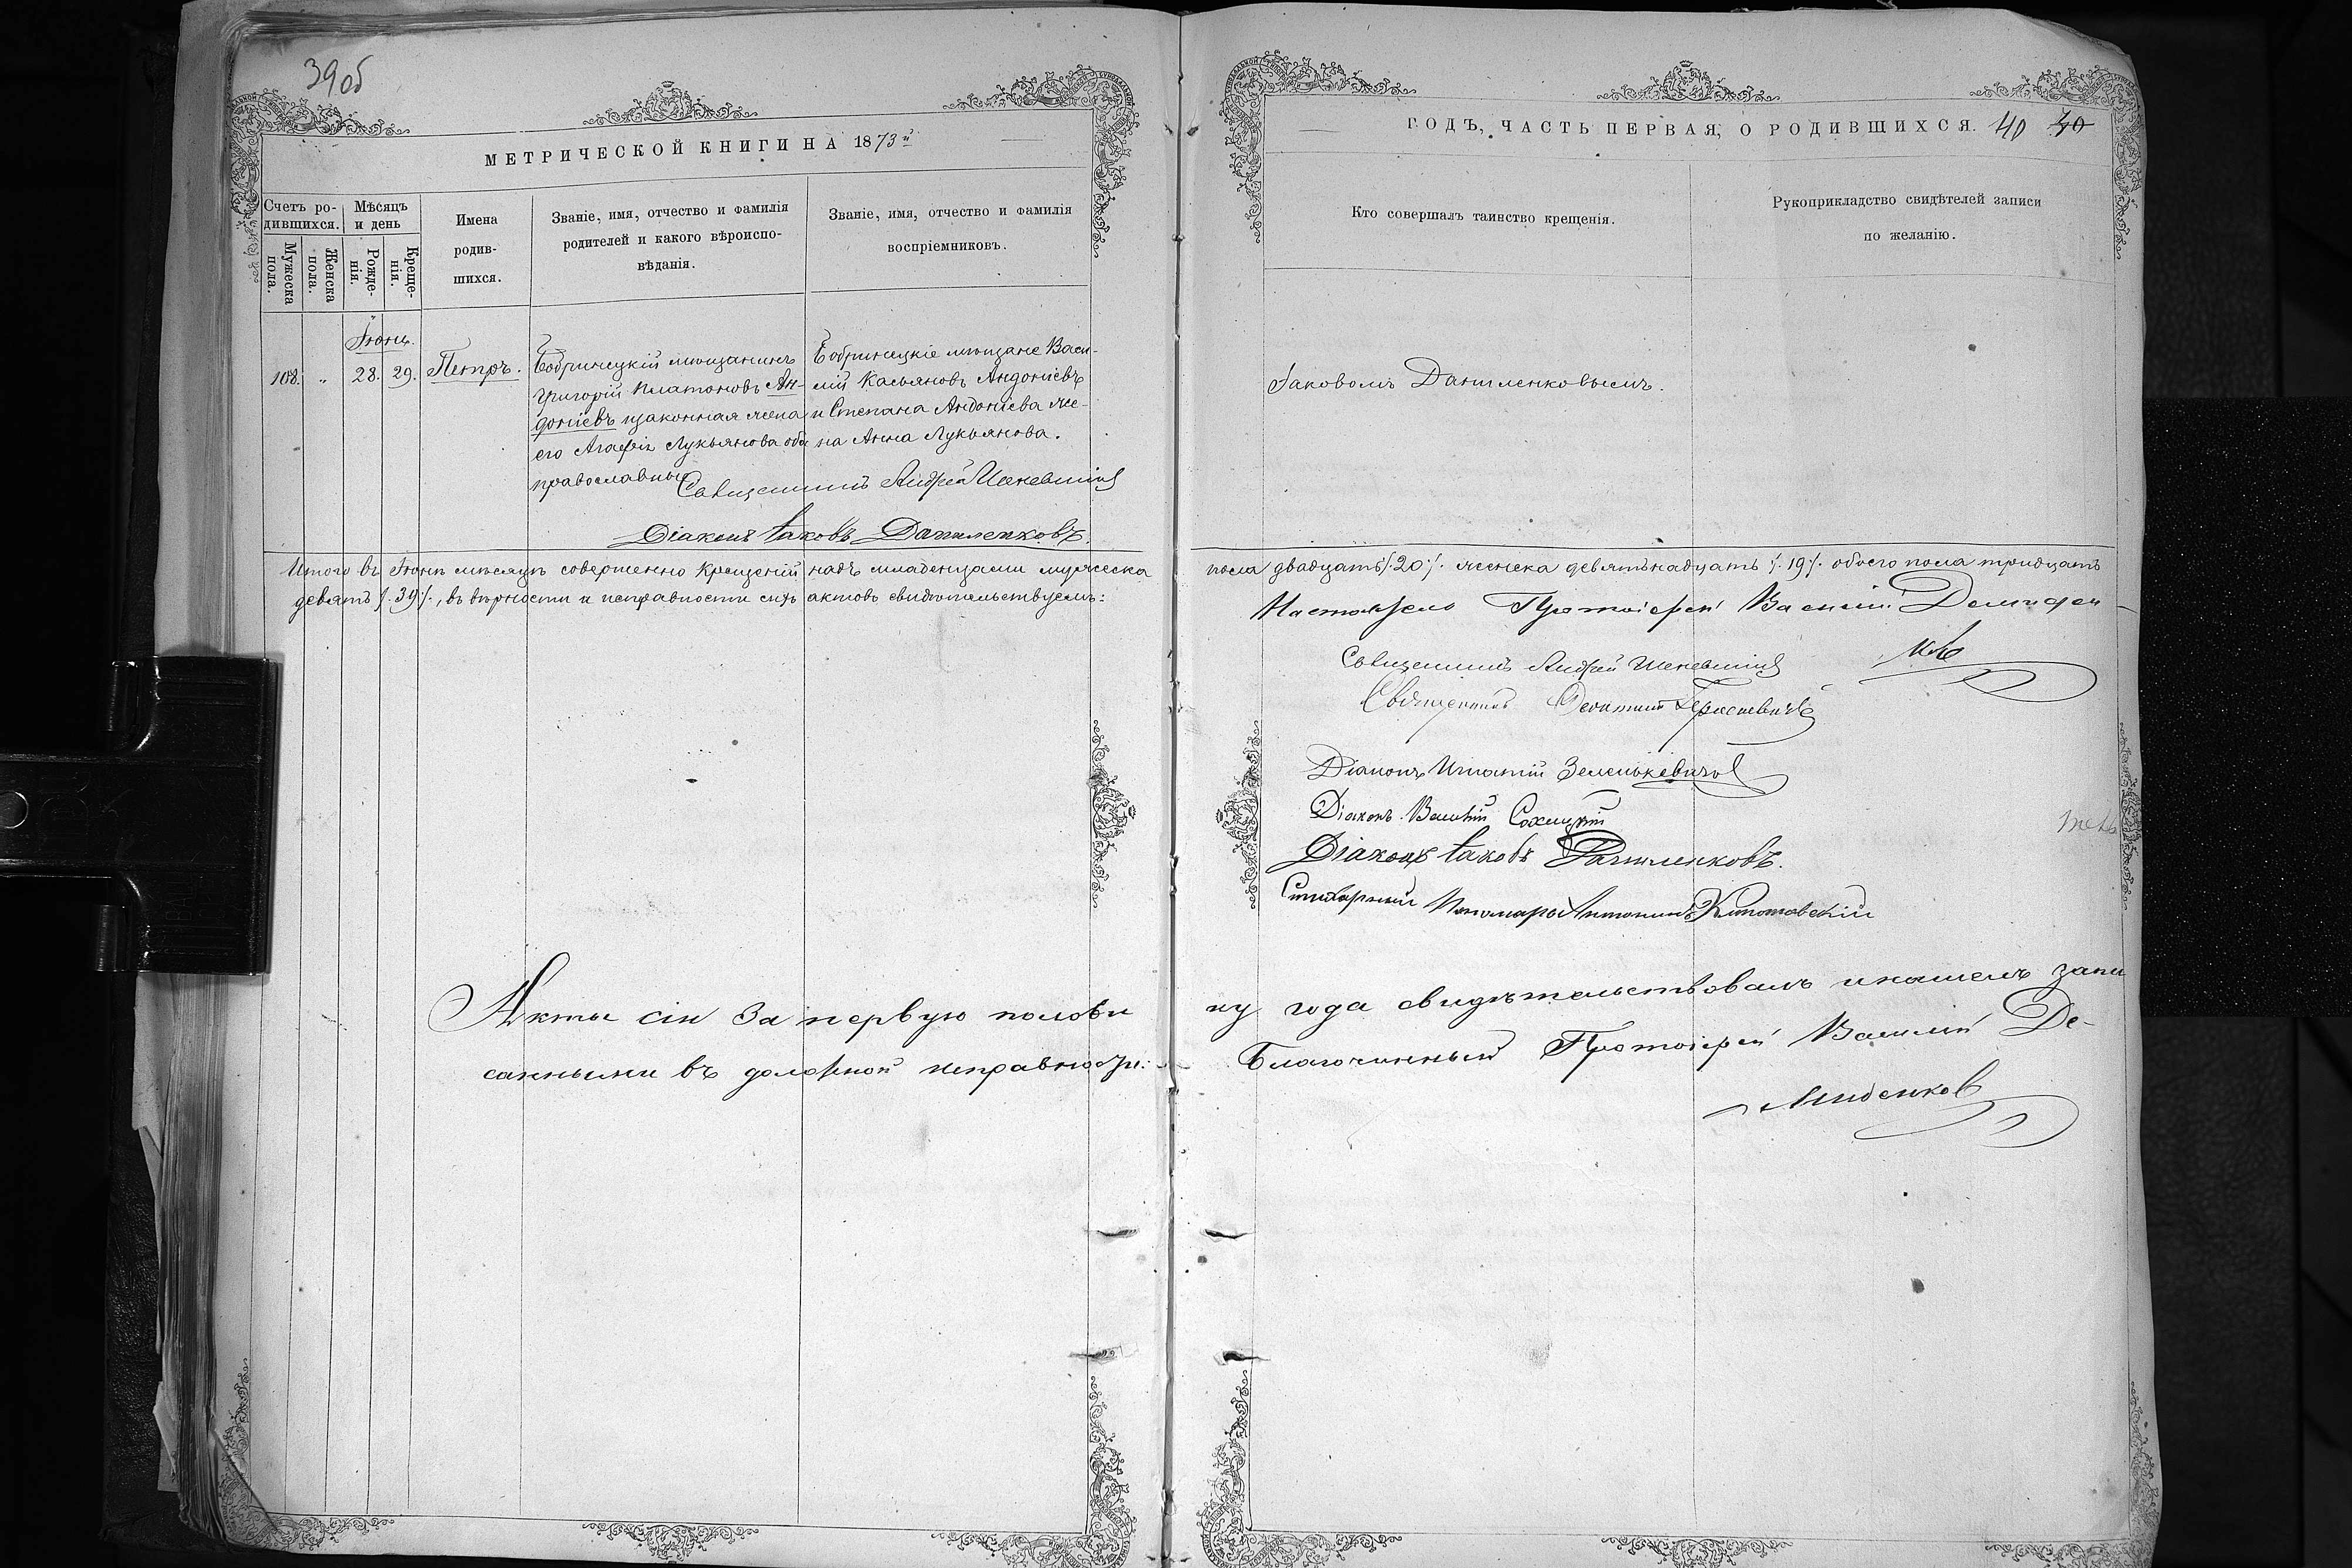 39об
МЕТРИЧЕСКОЙ КНИГИ НА 1873й
Счетъ ро-
дившихся.
Мѣсяцъ
и день
Мужеска
пола.
Женска
пола.
Рожде-
нія.
Креще-
нія.
Имена
родив-
шихся.
Званіе, имя, отчество и фамилія
родителей и какого вѣроиспо-
вѣданія.
Званіе, имя, отчество и фамилія
воспріемниковъ.
Іюнь.
108. „ 28. 29. Петръ.
Бобринецкій мѣщанинъ
Григорій Платоновъ Ан-
доніевъ изаконная жена
его Агафія Лукьянова оба
православные
Бобринецкіе мѣщане Васи-
лій Касьяновъ Андоніевъ
и Степана Андоніева же-
на Анна Лукьянова.
Священникъ Андрей
Діаконъ Іаковъ Даниленковъ.
Итого въ Іюнѣ мѣсяцѣ совершенно крещеній надъ младенцами мужеска
девять /.39/., въ вѣрности и исправности сихъ актовъ свидѣтельствуемъ:
Акты сіи за первую полови
санными въ должной исправности:
ГОДЪ, ЧАСТЬ ПЕРВАЯ, О РОДИВШИХСЯ. 40 40
Кто совершалъ таинство крещенія.
Рукоприкладство свидѣтелей записи
по желанію.
Іаковомъ Даниленковымъ.
пола двадцать /.20/. женска девятьнадцать /.19/. обоего пола тридцать
Настоятель Протоіерей Василій Демиден
ковъ
Священникъ Андрей
Священникъ
Діаконъ Игнатій Зеленькевичъ
Діаконъ Василій
Діаконъ Іаковъ Даниленковъ.
Стихарный Пономарь Антонинъ
ну года свидѣтельствовалъ инашелъ запи
Благочинный Протоіерей Василій Де-
миденков